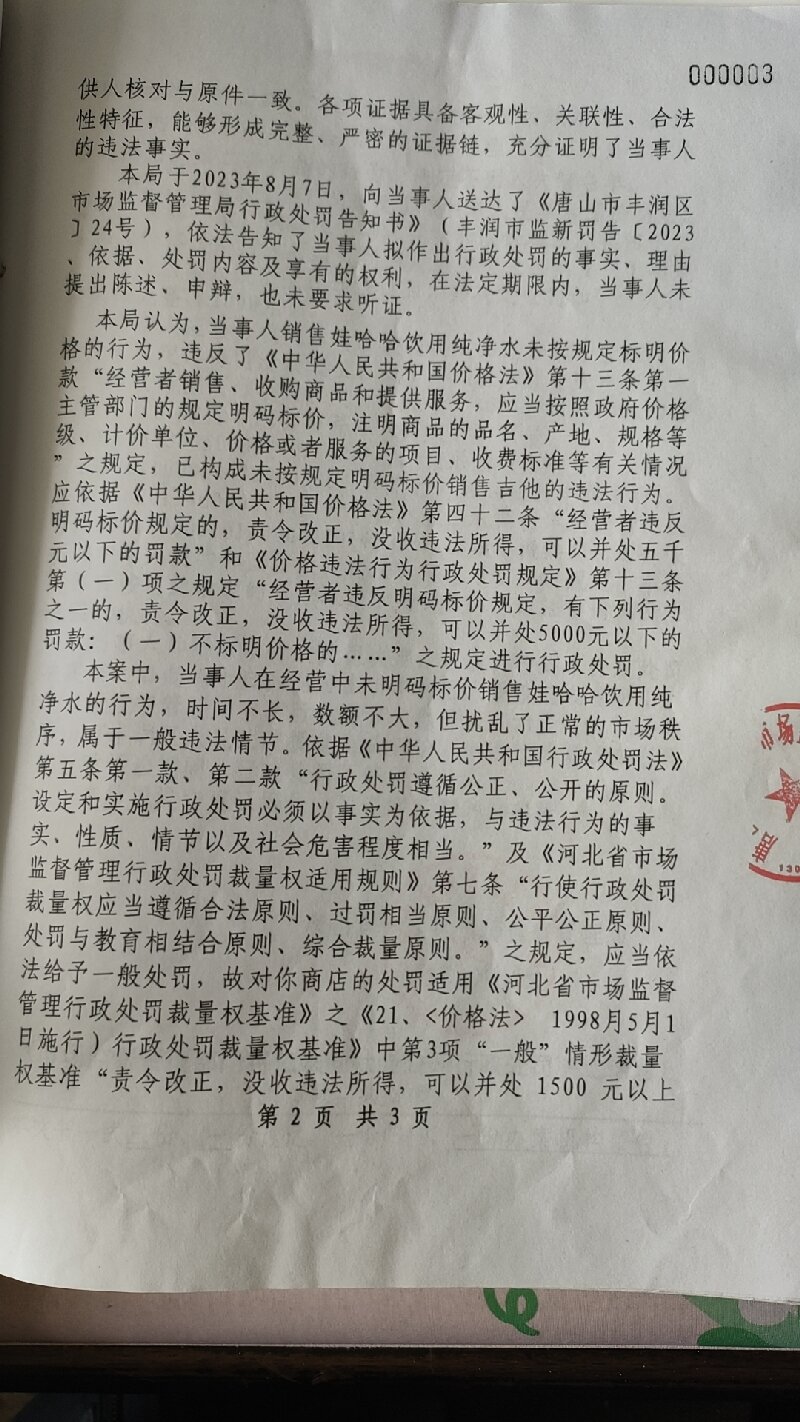 000003
供人核对与原件一致。各项证据具备客观性、关联性、合法
性特征，能够形成完整、严密的证据链，充分证明了当事人
的违法事实。
本局于2023年8月7日，向当事人送达了《唐山市丰润区
市场监督管理局行政处罚告知书》（丰润市监新罚告〔2023
〕24号），依法告知了当事人拟作出行政处罚的事实、理由
、依据、处罚内容及享有的权利，在法定期限内，当事人未
提出陈述、申辩，也未要求听证。
本局认为，当事人销售娃哈哈饮用纯净水未按规定标明价
格的行为，违反了《中华人民共和国价格法》第十三条第一
款“经营者销售、收购商品和提供服务，应当按照政府价格
主管部门的规定明码标价，注明商品的品名、产地、规格等
级、计价单位、价格或者服务的项目、收费标准等有关情况
”之规定，已构成未按规定明码标价销售吉他的违法行为。
应依据《中华人民共和国价格法》第四十二条“经营者违反
明码标价规定的，责令改正，没收违法所得，可以并处五千
元以下的罚款”和《价格违法行为行政处罚规定》第十三条
第（一）项之规定“经营者违反明码标价规定，有下列行为
之一的，责令改正，没收违法所得，可以并处5000元以下的
罚款：（一）不标明价格的……”之规定进行行政处罚。
本案中，当事人在经营中未明码标价销售娃哈哈饮用纯
净水的行为，时间不长，数额不大，但扰乱了正常的市场秩
序，属于一般违法情节。依据《中华人民共和国行政处罚法》
第五条第一款、第二款“行政处罚遵循公正、公开的原则。
设定和实施行政处罚必须以事实为依据，与违法行为的事
实、性质、情节以及社会危害程度相当。”及《河北省市场
监督管理行政处罚裁量权适用规则》第七条“行使行政处罚
裁量权应当遵循合法原则、过罚相当原则、公平公正原则、
处罚与教育相结合原则、综合裁量原则。”之规定，应当依
法给予一般处罚，故对你商店的处罚适用《河北省市场监督
管理行政处罚裁量权基准》之《21、<价格法> 1998月5月1
日施行）行政处罚裁量权基准》中第3项“一般”情形裁量
权基准“责令改正，没收违法所得，可以并处 1500 元以上
第 2 页 共 3 页
市场
唐
130